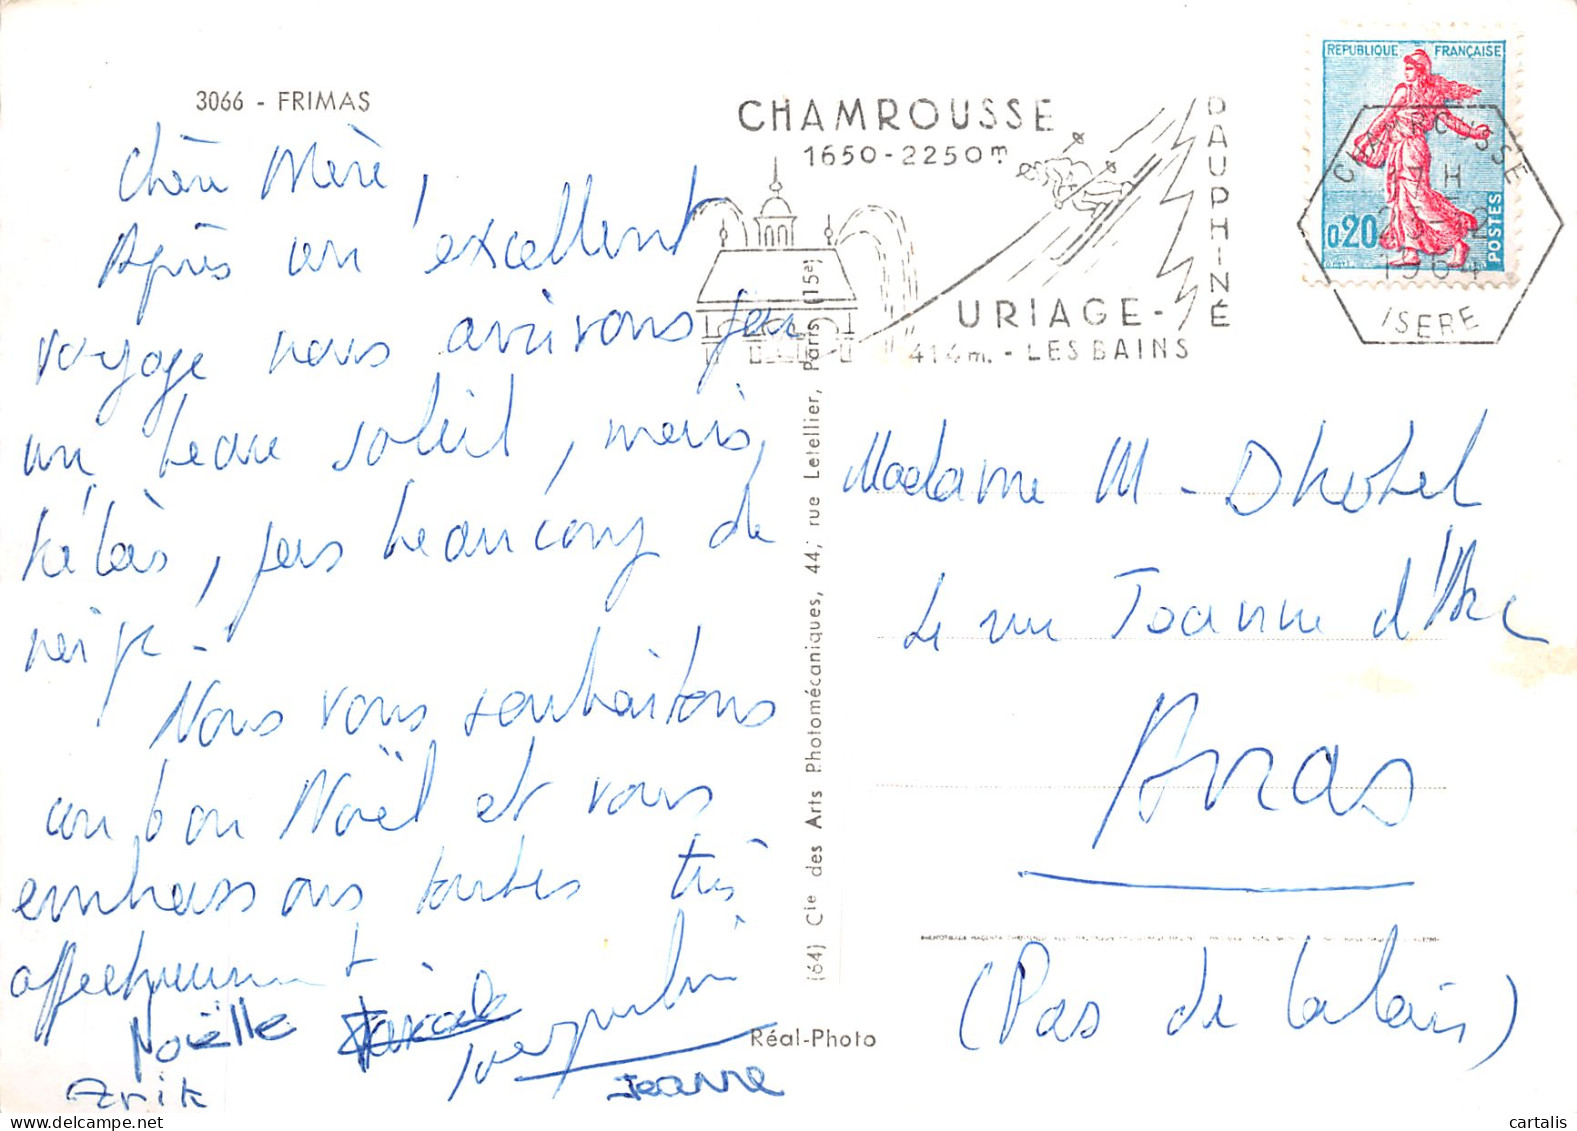 3066 - FRIMAS
Chère Mère,
Après un excellent
voyage nous arrivons par
un beau soleil, mais,
hélàs, pas beaucoup de
neige.
Nous vous souhaitons
un bon Noël et vous
embrassons toutes très
affectueusement
Noëlle Pascale Jacqueline
Erik Jeanne
CHAMROUSSE
1650-2250m
URIAGE-
414m. - LES BAINS
DAUPHINÉ
REPUBLIQUE FRANÇAISE
0,20
POSTES
CHAMROUSSE
17H
1964
ISERE
(64) Cie des Arts Photomécaniques, 44, rue Letellier, Paris (15e)
Réal-Photo
Madame M - Dhotel
rue Jeanne d'Arc
Arras
(Pas de Calais)
cartalis
https://www.delcampe.net